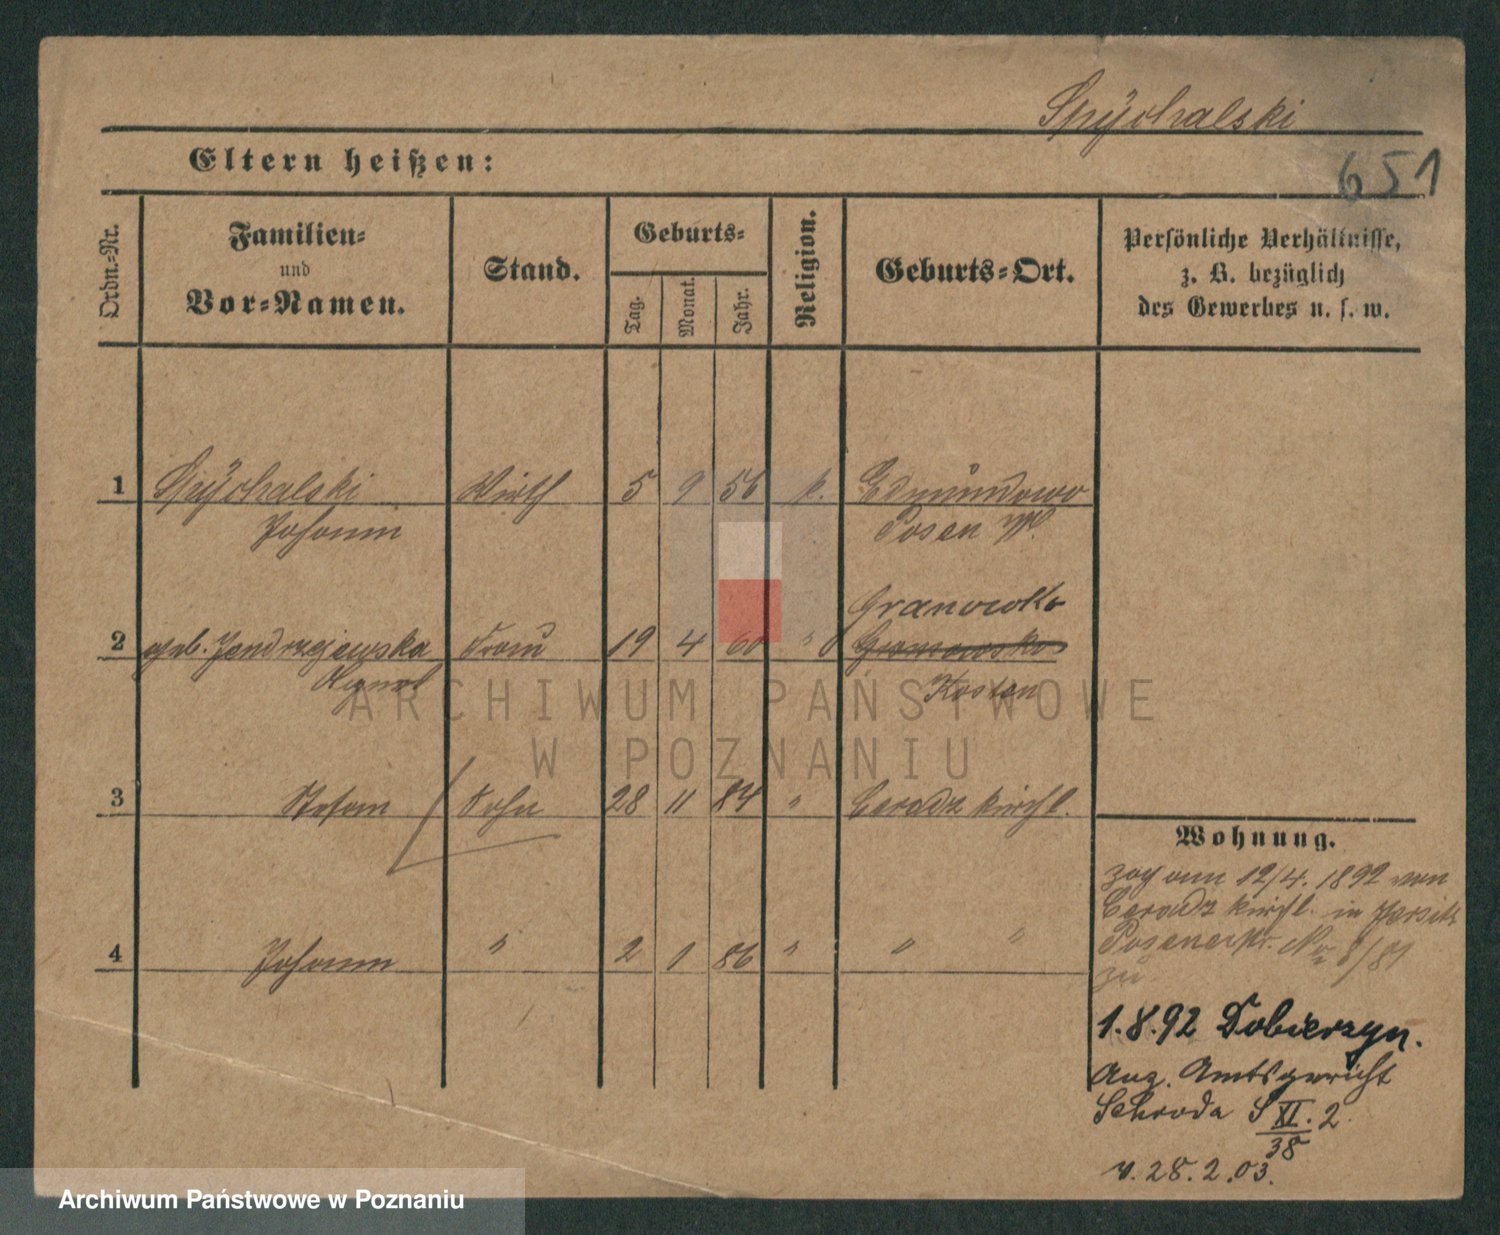 Spÿchalski
Eltern heißen:
651
Ordn.-Nr.
Familien-
und
Vor-Namen.
Stand.
Geburts-
Tag.
Monat.
Jahr.
Religion.
Geburts-Ort.
Persönliche Verhältnisse,
z. B. bezüglich
des Gewerbes u. s. w.
1 Spÿchalski Wirth 5 9 56 k. Edmundowo
Johann Posen W.
Granowko
2 geb. Jendrzejewska Frau 19 4 60 " Granowsko
Agnes Kosten
ARCHIWUM PAŃSTWOWE
W POZNANIU
3 Stefan Sohn 28 11 84 " Ceradz kirchl.
Wohnung.
zog am 12/4. 1892 von
Ceradz kirchl. in Jersitz
Posenerstr. No 8/81
zu
4 Johann " 2 1 86 " " "
1.8.92 Dobierzyn.
Anz. Amtsgericht
Schroda S XI. 2
38
v. 28.2.03.
Archiwum Państwowe w Poznaniu